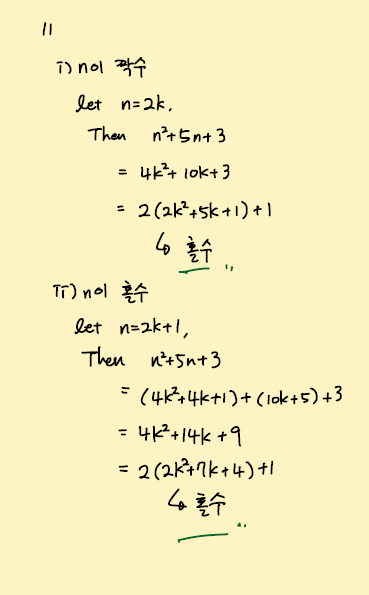 11
i) n이 짝수
let n=2k,
Then n²+5n+3
= 4k²+10k+3
= 2(2k²+5k+1)+1
↳ 홀수
ii) n이 홀수
let n=2k+1,
Then n²+5n+3
= (4k²+4k+1)+(10k+5)+3
= 4k²+14k+9
= 2(2k²+7k+4)+1
↳ 홀수